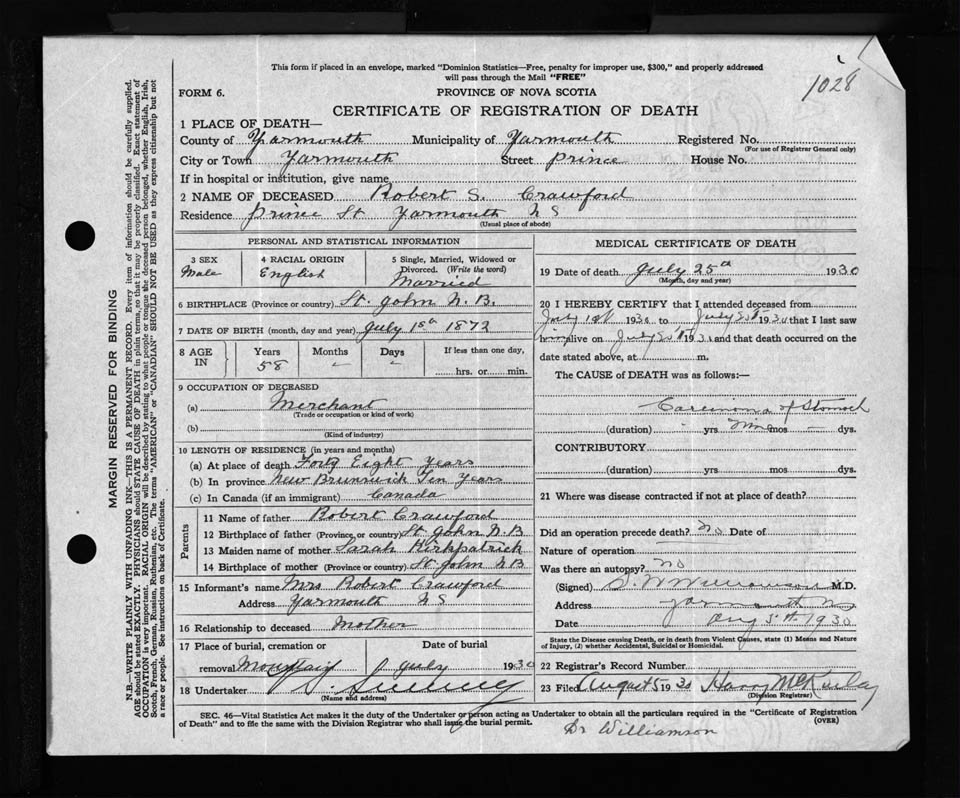 This form if placed in an envelope, marked "Dominion Statistics—Free, penalty for improper use, $300," and properly addressed
will pass through the Mail "FREE"
1028
FORM 6.
PROVINCE OF NOVA SCOTIA
CERTIFICATE OF REGISTRATION OF DEATH
1 PLACE OF DEATH—
County of Yarmouth Municipality of Yarmouth Registered No.
(For use of Registrar General only)
City or Town Yarmouth Street Prince House No.
If in hospital or institution, give name
2 NAME OF DECEASED Robert S. Crawford
Residence Prince St Yarmouth N S
(Usual place of abode)
PERSONAL AND STATISTICAL INFORMATION
3 SEX
Male
4 RACIAL ORIGIN
English
5 Single, Married, Widowed or
Divorced. (Write the word)
Married
6 BIRTHPLACE (Province or country) St. John N. B.
7 DATE OF BIRTH (month, day and year) July 1st 1872
8 AGE IN
Years
58
Months
–
Days
–
If less than one day,
hrs. or min.
9 OCCUPATION OF DECEASED
(a) Merchant
(Trade or occupation or kind of work)
(b)
(Kind of industry)
10 LENGTH OF RESIDENCE (in years and months)
(a) At place of death Forty Eight Years
(b) In province New Brunswick Ten Years
(c) In Canada (if an immigrant) Canada
Parents
11 Name of father Robert Crawford
12 Birthplace of father (Province or country) St. John N B
13 Maiden name of mother Sarah Kirkpatrick
14 Birthplace of mother (Province or country) St John N B
15 Informant's name Mrs Robert Crawford
Address Yarmouth N S
16 Relationship to deceased Mother
17 Place of burial, cremation or
Date of burial
removal July 1930
18 Undertaker
(Name and address)
MEDICAL CERTIFICATE OF DEATH
19 Date of death July 25th 1930
(Month, day and year)
20 I HEREBY CERTIFY that I attended deceased from
July 1st 1930 to July 1930 that I last saw
him alive on July 193 and that death occurred on the
date stated above, at m.
The CAUSE of DEATH was as follows:—
Carcinoma of Stomach
(duration) yrs mos – dys.
CONTRIBUTORY
(duration) yrs mos dys.
21 Where was disease contracted if not at place of death?
Did an operation precede death? No Date of
Nature of operation
Was there an autopsy? No
(Signed) Williamson M.D.
Address Yarmouth
Date Aug 5th 1930
State the Disease causing Death, or in death from Violent Causes, state (1) Means and Nature
of Injury, (2) whether Accidental, Suicidal or Homicidal.
22 Registrar's Record Number
23 Filed August 5 1930 Harry
(Division Registrar)
SEC. 46—Vital Statistics Act makes it the duty of the Undertaker or person acting as Undertaker to obtain all the particulars required in the "Certificate of Registration
of Death" and to file the same with the Division Registrar who shall issue the burial permit.
(OVER)
Dr Williamson
MARGIN RESERVED FOR BINDING
N.B.—WRITE PLAINLY WITH UNFADING INK—THIS IS A PERMANENT RECORD. Every item of information should be carefully supplied.
AGE should be stated EXACTLY. PHYSICIANS should STATE CAUSE OF DEATH in plain terms, so that it may be properly classified. Exact statement of
OCCUPATION is very important. RACIAL ORIGIN will be described by stating to what people or tongue the deceased person belonged, whether English, Irish,
Scotch, French, German, Russian, Ruthenian, etc. The terms "AMERICAN" or "CANADIAN" SHOULD NOT BE USED as they express citizenship but not
a race or people. See instructions on back of Certificate.